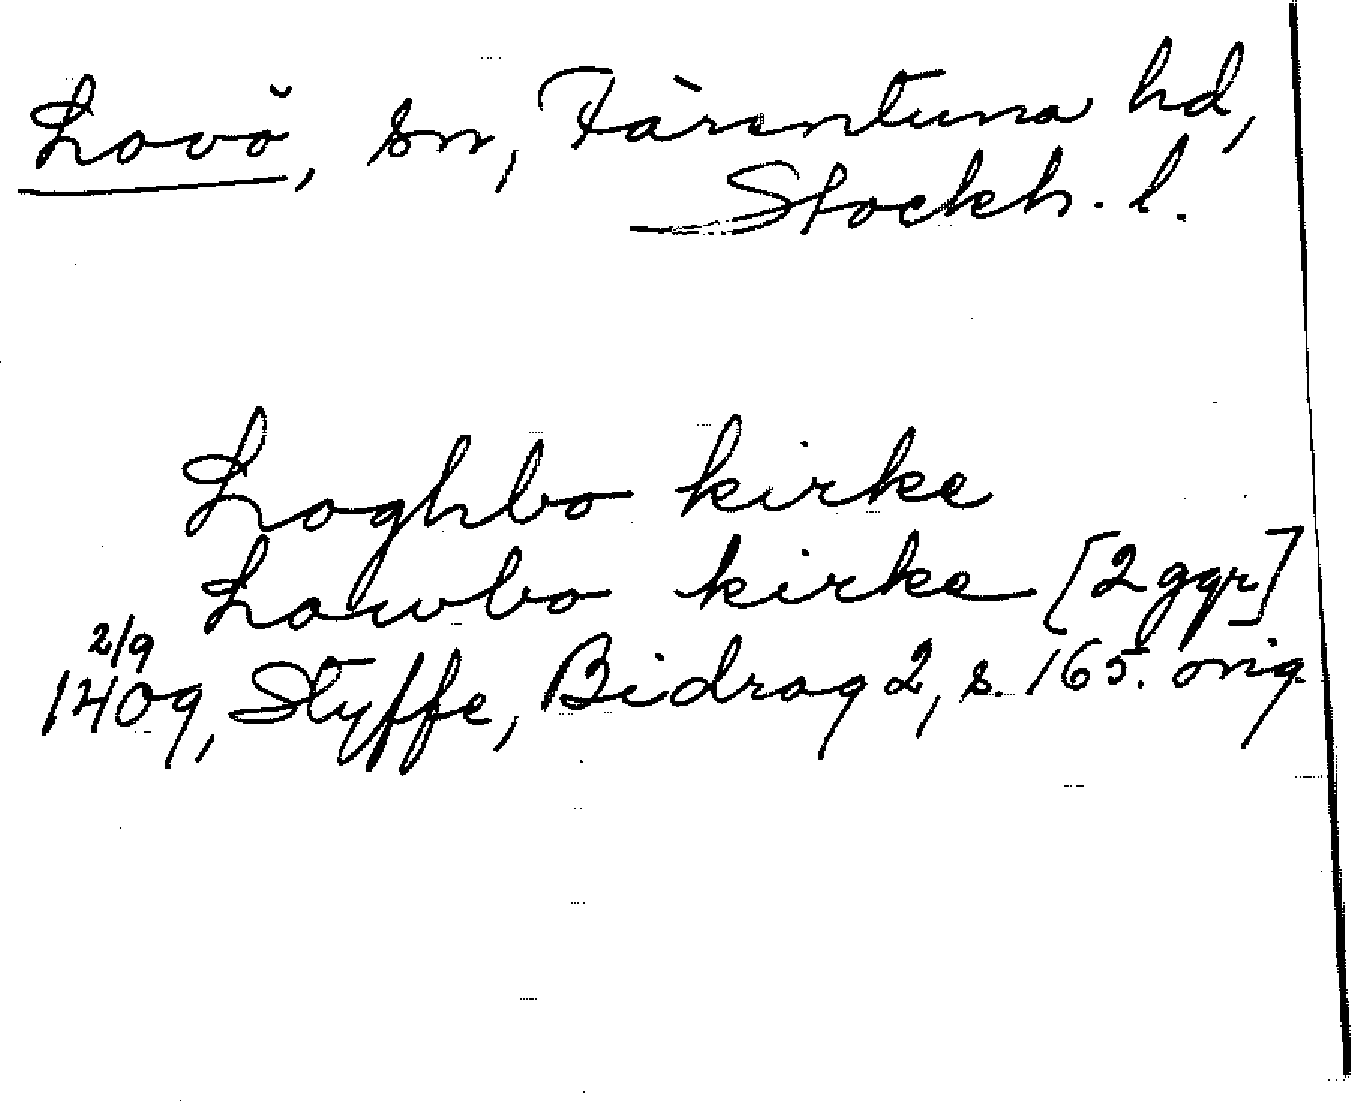 Lovö, sn, Färentuna hd,
Stockh. l.
Loghbo kirke
Lowbo kirke [2 ggr]
2/9
1409, Styffe, Bidrag 2, s. 165. orig.